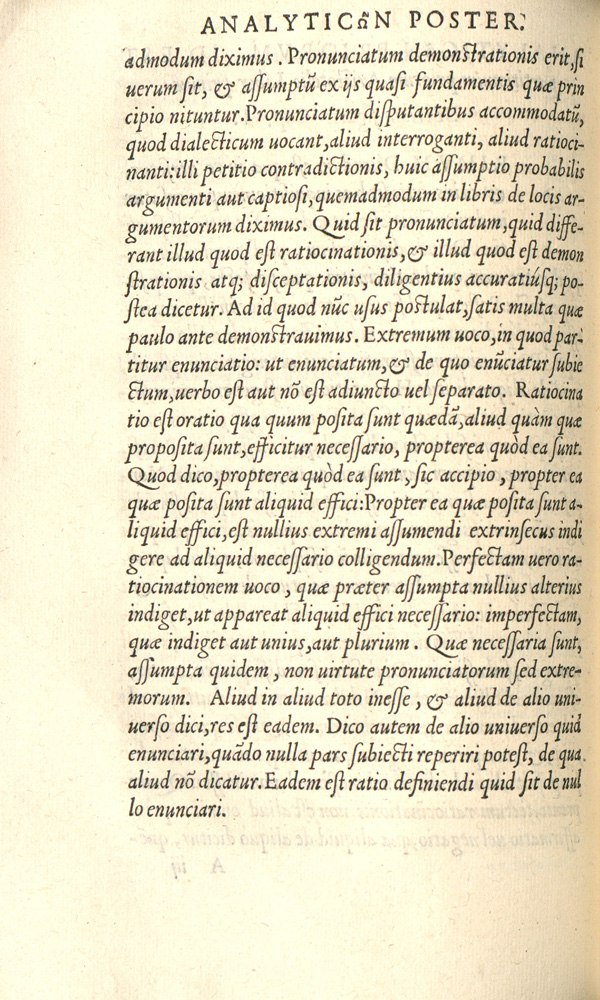 ANALYTICῶN POSTER.
admodum diximus. Pronunciatum demonſtrationis erit, ſi
uerum ſit, & aſſumptū ex ijs quaſi fundamentis quæ prin
cipio nituntur. Pronunciatum diſputantibus accommodatū,
quod dialecticum uocant, aliud interroganti, aliud ratioci-
nanti: illi petitio contradictionis, huic aſſumptio probabilis
argumenti aut captioſi, quemadmodum in libris de locis ar-
gumentorum diximus. Quid ſit pronunciatum, quid diffe-
rant illud quod eſt ratiocinationis, & illud quod eſt demon
ſtrationis atq; diſceptationis, diligentius accuratiúsq; po-
ſtea dicetur. Ad id quod nūc uſus poſtulat, ſatis multa quæ
paulo ante demonſtrauimus. Extremum uoco, in quod par-
titur enunciatio: ut enunciatum, & de quo enūciatur ſubie
ctum, uerbo eſt aut nō eſt adiuncto uel ſeparato. Ratiocina
tio eſt oratio qua quum poſita ſunt quædā, aliud quàm quæ
propoſita ſunt, efficitur neceſſario, propterea quòd ea ſunt.
Quod dico, propterea quòd ea ſunt, ſic accipio, propter ea
quæ poſita ſunt aliquid effici: Propter ea quæ poſita ſunt a-
liquid effici, eſt nullius extremi aſſumendi extrinſecus indi
gere ad aliquid neceſſario colligendum. Perfectam uero ra-
tiocinationem uoco, quæ præter aſſumpta nullius alterius
indiget, ut appareat aliquid effici neceſſario: imperfectam,
quæ indiget aut unius, aut plurium. Quæ neceſſaria ſunt,
aſſumpta quidem, non uirtute pronunciatorum ſed extre-
morum. Aliud in aliud toto ineſſe, & aliud de alio uni-
uerſo dici, res eſt eadem. Dico autem de alio uniuerſo quid
enunciari, quādo nulla pars ſubiecti reperiri poteſt, de qua
aliud nō dicatur. Eadem eſt ratio definiendi quid ſit de nul
lo enunciari.